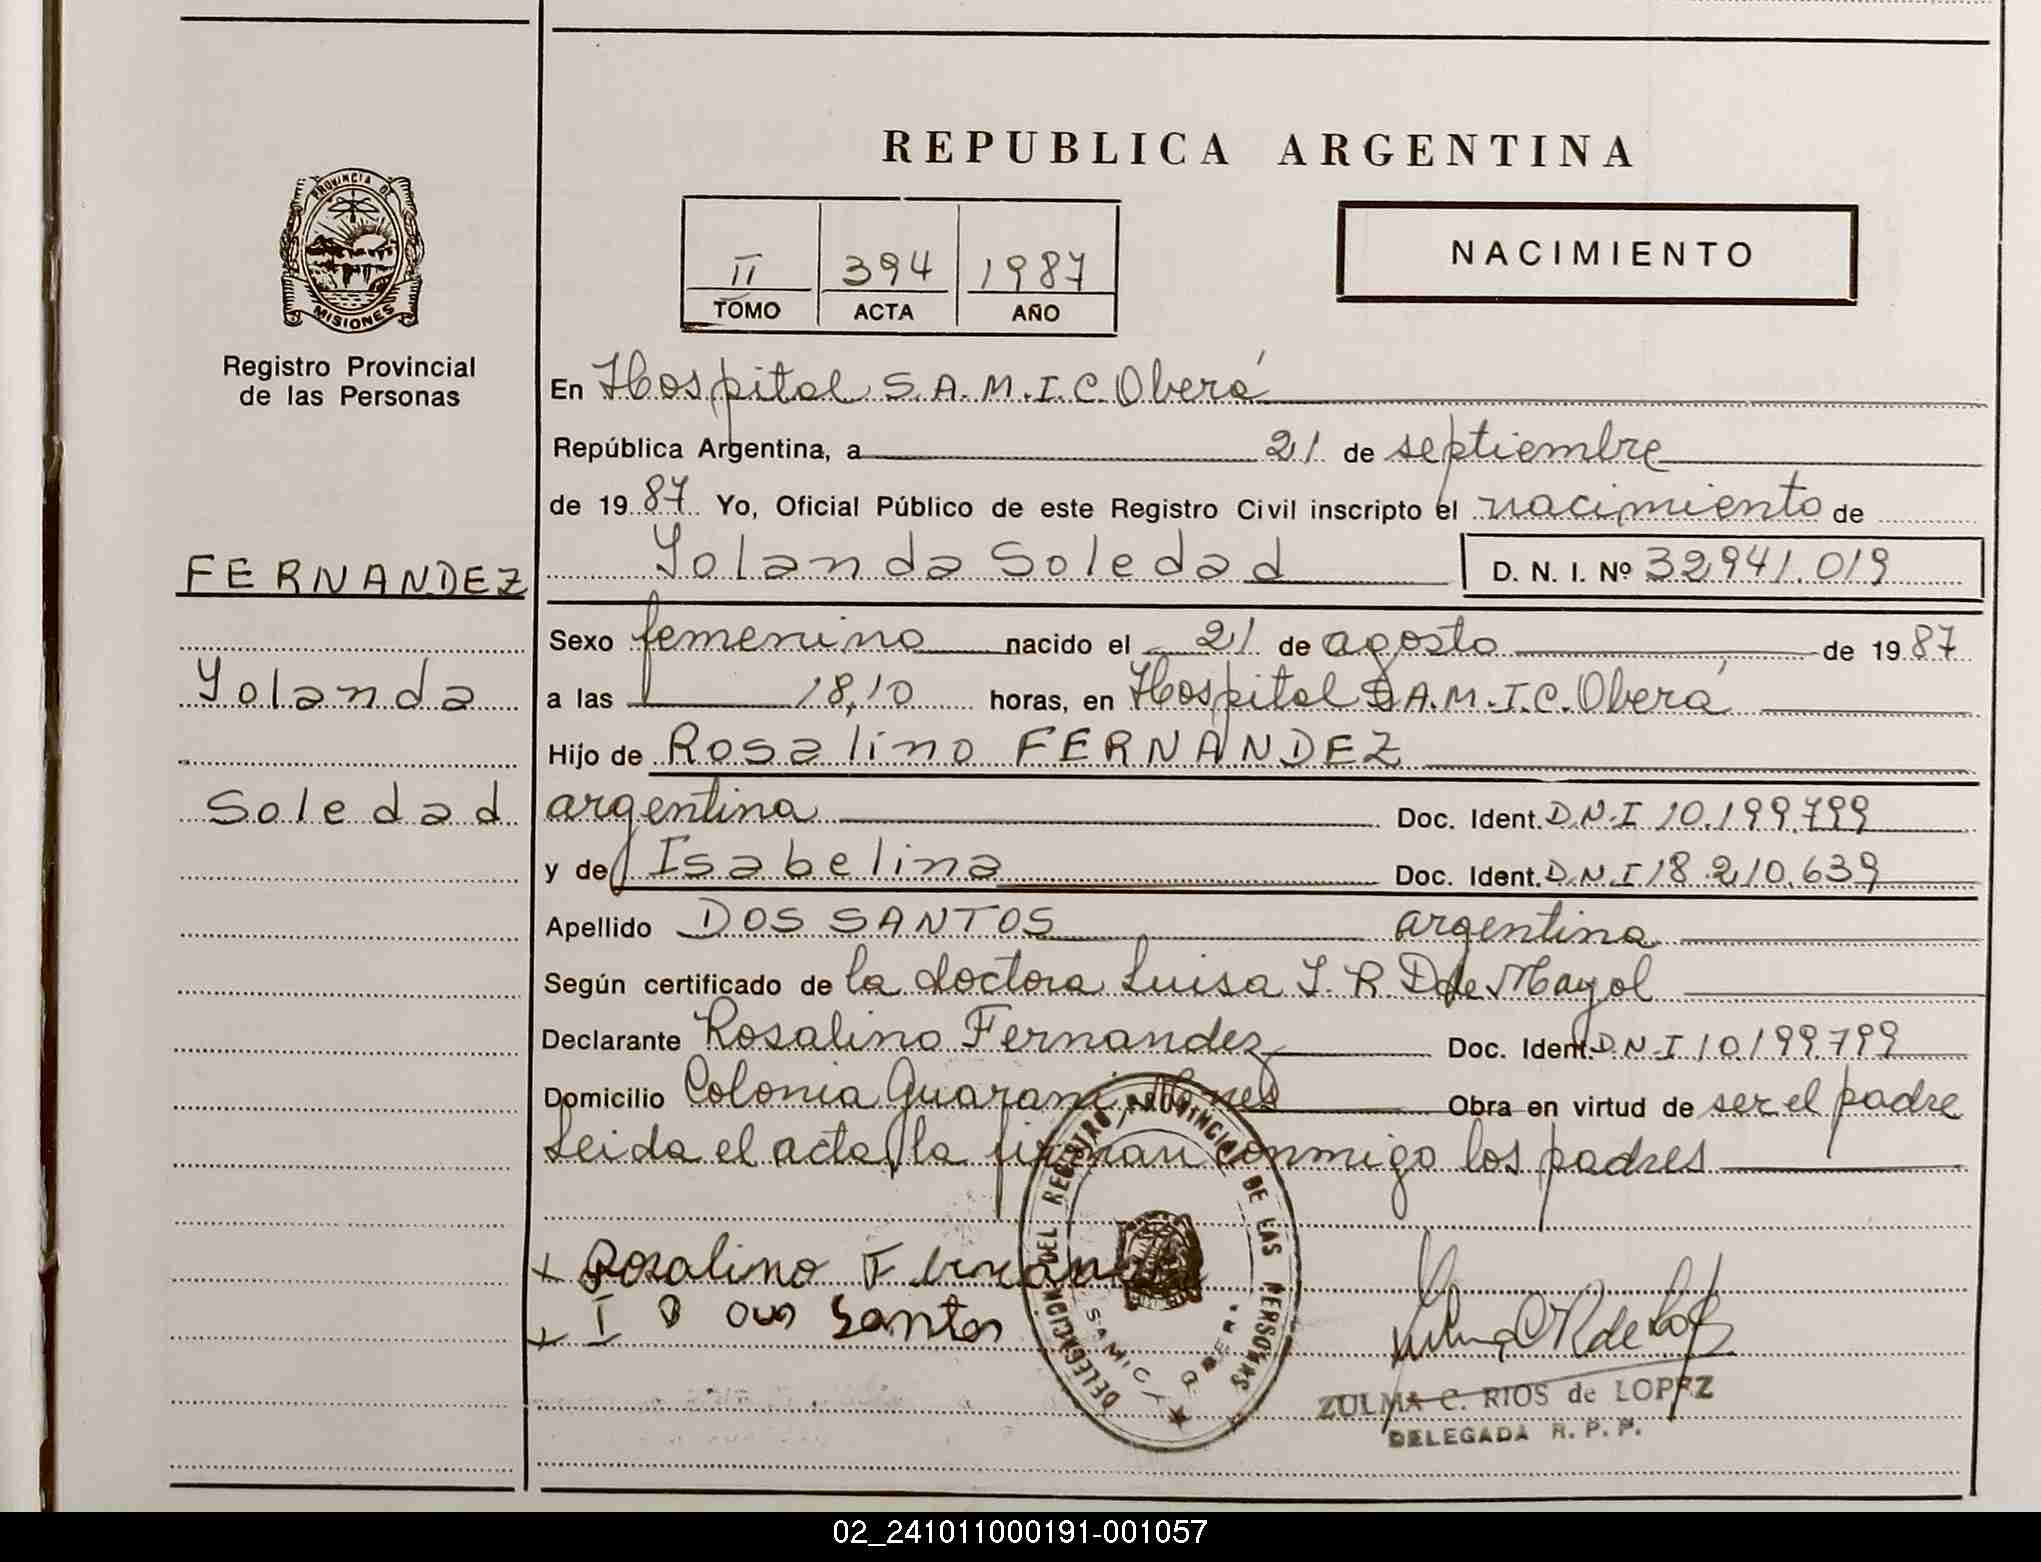 REPUBLICA ARGENTINA
PROVINCIA DE
MISIONES
Registro Provincial
de las Personas
II 394 1987
TOMO ACTA AÑO
NACIMIENTO
En Hospital S.A.M.I.C. Oberá
República Argentina, a 21 de septiembre
de 1987 Yo, Oficial Público de este Registro Civil inscripto el nacimiento de
Yolanda Soledad D. N. I. Nº 32941.019
FERNANDEZ
Yolanda
Soledad
Sexo femenino nacido el 21 de agosto de 1987
a las 18,10 horas, en Hospital S.A.M.I.C. Oberá
Hijo de Rosalino FERNANDEZ
argentina Doc. Ident. D.N.I 10.199.799
y de Isabelina Doc. Ident. D.N.I 18.210.639
Apellido DOS SANTOS argentina
Según certificado de la doctora Luisa I. R. D de Mayol
Declarante Rosalino Fernandez Doc. Ident. D.N.I 10.199799
Domicilio Colonia Guarani Mnes Obra en virtud de ser el padre
Leida el acta, la firman conmigo los padres
Rosalino Fernandez
I D Santos
DELEGACION DEL REGISTRO PROVINCIAL DE LAS PERSONAS
SAMIC OBERA
ZULMA C. RIOS de LOPEZ
DELEGADA R. P. P.
02_241011000191-001057